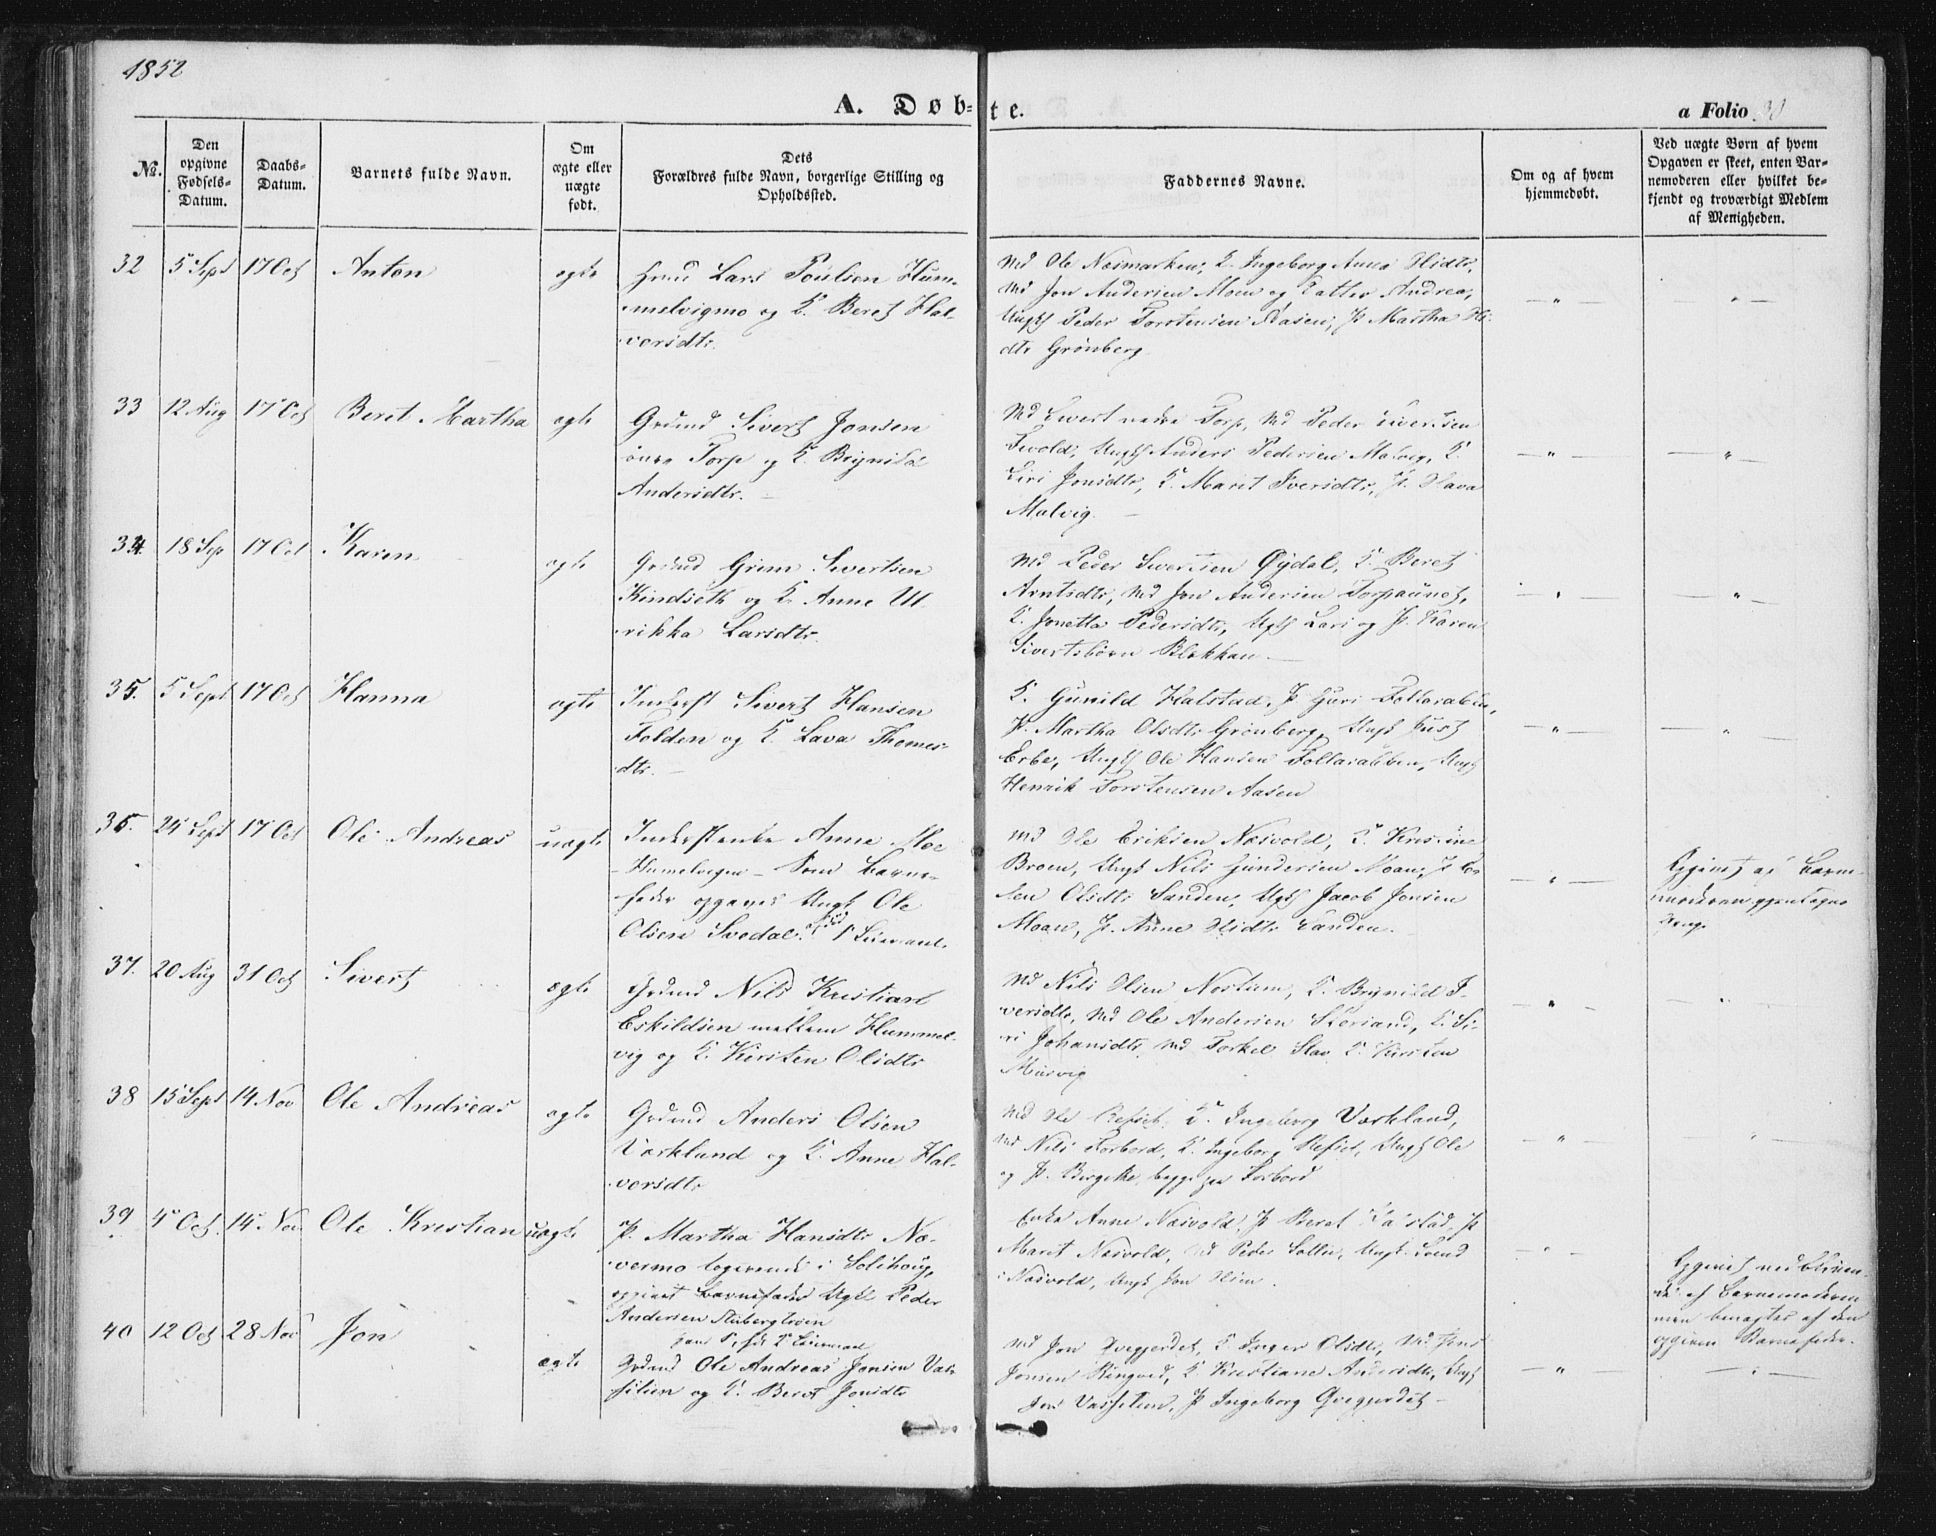 1852
A. Døbte.
a Folio 30
No.
Den opgivne Fødsels-Datum.
Daabs-Datum.
Barnets fulde Navn.
Om ægte eller uægte født.
Dets Forældres fulde Navn, borgerlige Stilling og Opholdssted.
Faddernes Navne.
Om og af hvem hjemmedøbt.
Ved uægte Børn af hvem Opgaven er skeet, enten Barnemoderen eller hvilket bekjendt og troværdigt Medlem af Menigheden.
32 5 Sept 17 Oct Anton ægte
Lars Poulsen Hum-
melvigmo og K. Beret Hal-
vorsdtr.
Md Ole Næsmarken, K. Ingeborg Anna Olsdtr,
Md Jon Andersen Moen og Datter Andrea,
Ungk Peder Torstensen Aasen, P. Martha Ol-
dtr Grønberg
33 12 Aug 17 Oct Beret Martha ægte
Grdmd Sivert Jonsen
Torp og K. Brynild
Andersdtr.
Md Sivert Torp, Md Peder Iversen
Ungk Anders Pedersen Malvig, K.
Siri Jonsdtr, K. Marit Iversdtr, P. Lava
Malvig.
34 18 Sep 17 Oct Karen ægte
Grdmd Grim Sivertsen
Kindseth og K. Anne Ul-
rikka Larsdtr.
Md Peder Sivertsen Øydal, K. Beret
Arntsdtr, Md Jon Andersen Torpaunet,
K. Jonetta Pedersdtr, Ungk Lars og P. Karen
Sivertsbørn Blekkan
35. 5 Sept 17 Oct Hanna ægte
Inderst Sivert Hansen
Folden og K. Lava Thomes-
dtr.
K. Gunild Halstad, P Guri
P. Martha Olsdtr Grønberg, Ungk Just
Erbe, Ungk Ole Hansen Ungk
Henrik Torstensen Aasen
36. 24 Sept 17 Oct Ole Andreas uægte
Anne Moe
Som Barne-
fader opgaves Ungk Ole
Olsen Svedal.
Md Ole Eriksen Næsvold, K. Kristine
Broen, Ungk Nils Gundersen Moan, P
Olsdtr Sanden, Ungk Jacob Jonsen
Moan, P. Anne Olsdtr Sanden.
Opgivet af Barne-
moderen
37. 20 Aug 31 Oct Sivert ægte
Grdmd Nils Kristian
Eskildsen mellem Hummel-
vig og K. Kirsten Olsdtr
Md Nils Olsen Nostum, K. Brynild I-
versdtr, Md Ole Andersen K. Si-
ri Johansdtr, Md Torkel Stav, K. Kirsten
Musvig
38 15 Sept 14 Nov Ole Andreas ægte
Grdmd Anders Olsen
Værkland og K. Anne Hal-
vorsdtr
Md Ole K. Ingeborg Værkland,
Md Nils Forbord, K. Ingeborg Ungk Ole
og P. Birgitte, begge paa Forbord
39 4 Oct. 14 Nov Ole Kristian uægte
P. Martha Hansdtr Næ-
vermo logerende i Solihoug,
opgivet Barnefader Ungk Peder
Andersen Stubergtrøen
Enke Anne Næsvold, P Beret P
Marit Næsvold, Md Peder Ungk Svend
Næsvold, Ungk Jon
Opgivet
af Barnemoderen
men benægtes af den
opgivne Barnefader.
40 12 Oct 28 Nov Jon ægte
Grdmd Ole Andreas Jonsen Vas-
silien og K. Beret Jonsdtr
Md Jon K Inger Olsdtr, Md Jens
Jonsen K Kristiane Andersdtr, Ungk
Jens P Ingeborg